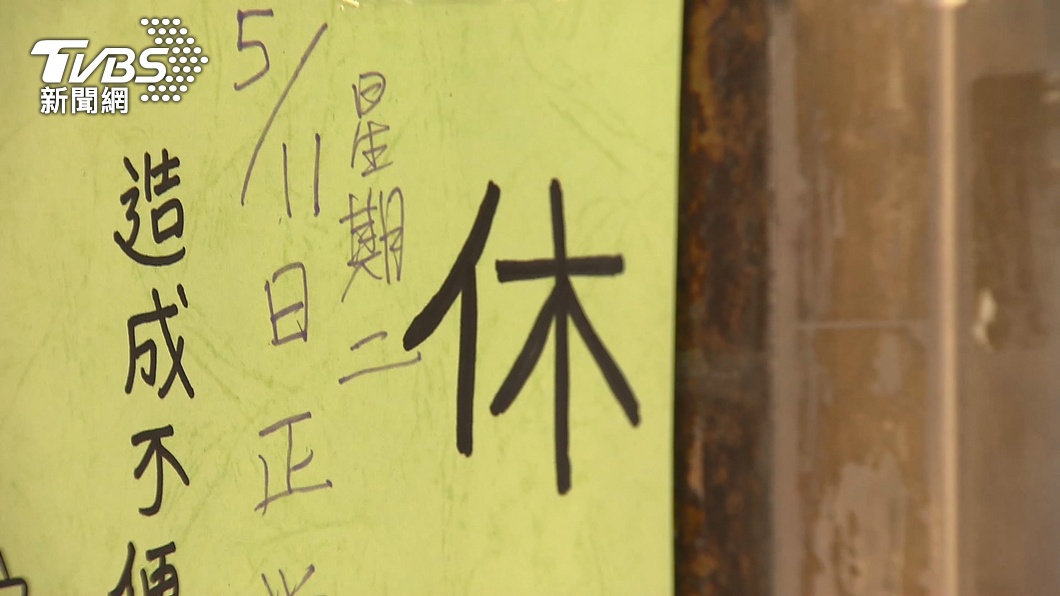 TVBS
新聞網
休
星期二
5/11日正
造成不便